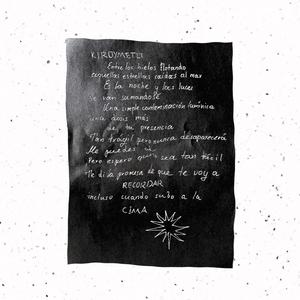 KIRDYMETLI
Entre los hielos flotando
aquellas estrellas caídas al mar
Es la noche y las luces
se van sumandose
Una simple contaminación lumínica
una dosis más
de tu presencia
Tan fragil pero nunca desaparecerá
Me puedes
Pero espero que sea tan fácil
Te di la promesa de que te voy a
RECORDAR
incluso cuando subo a la
CIMA